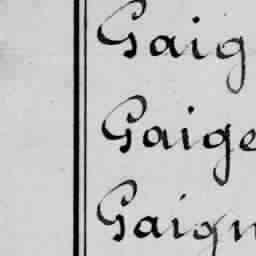 Gaig
Gaige
Gaign